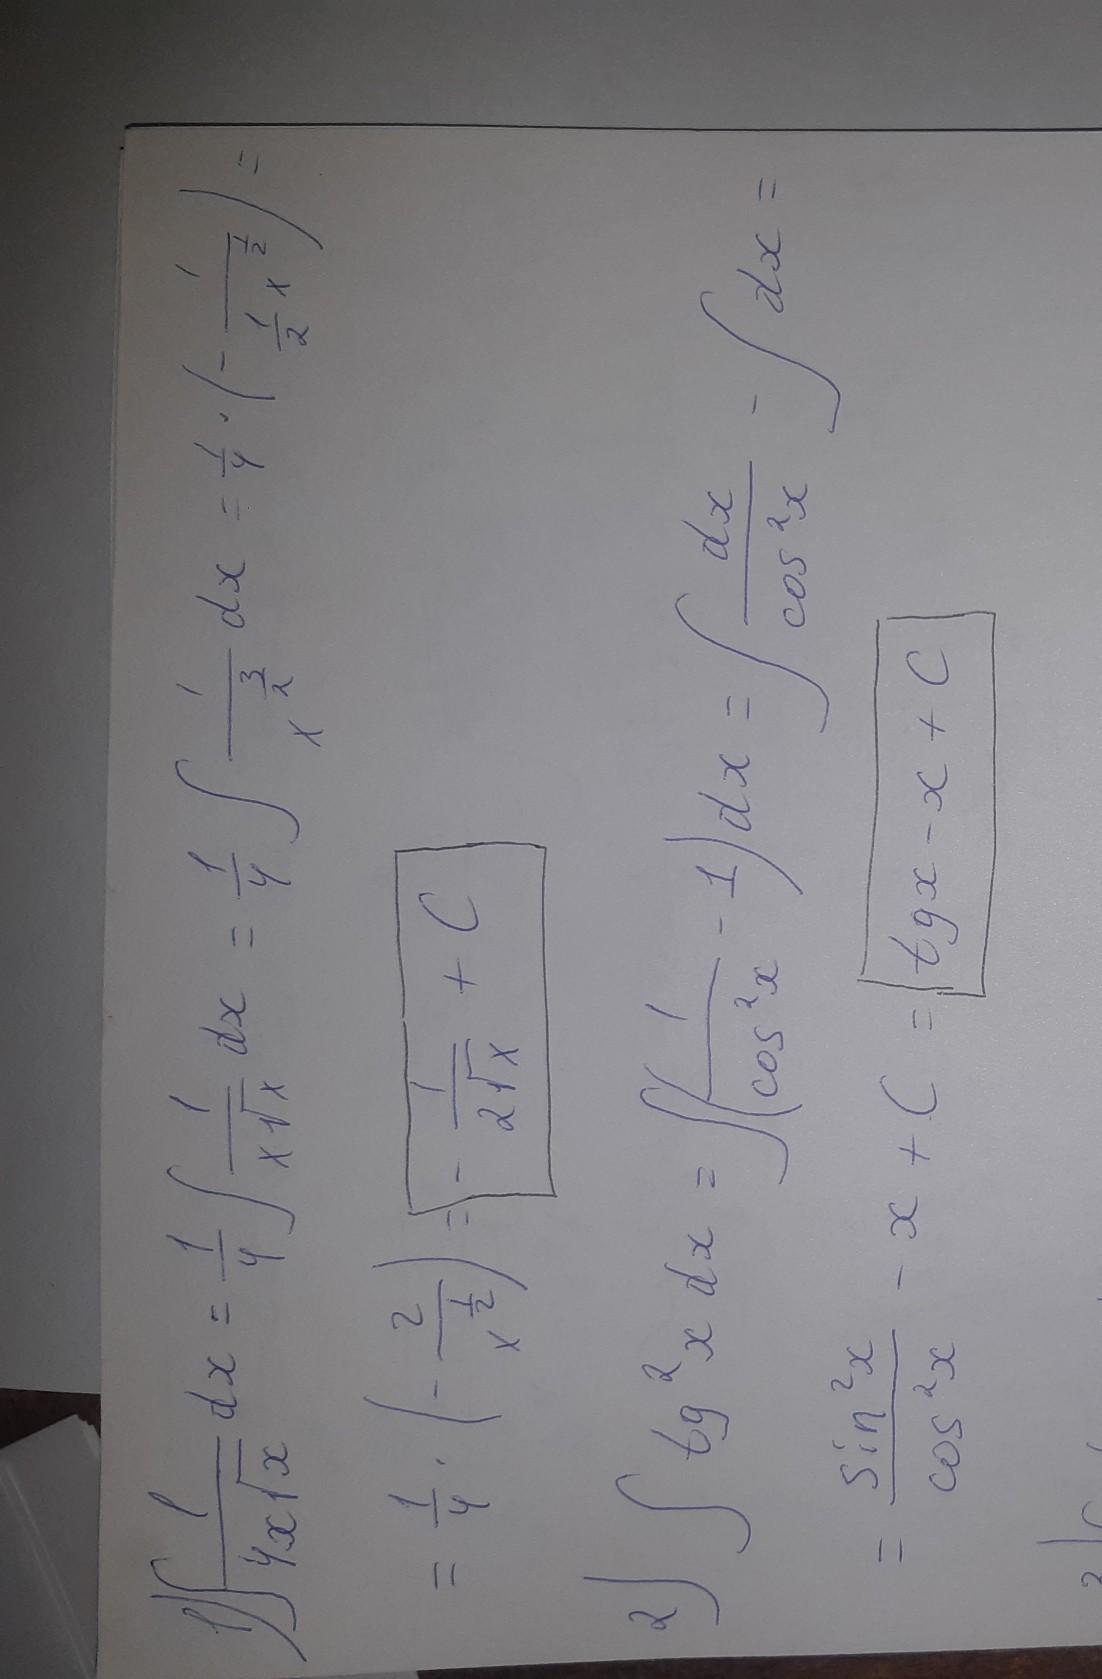 1) ∫ 1/(4x√x) dx = 1/4 ∫ 1/(x√x) dx = 1/4 ∫ 1/x^(3/2) dx = 1/4 · (- 1/(1/2 x^(1/2))) =
= 1/4 · (- 2/x^(1/2)) = - 1/(2√x) + C
2) ∫ tg²x dx = ∫(1/cos²x - 1)dx = ∫ dx/cos²x - ∫ dx =
= sin²x/cos²x - x + C = tgx - x + C